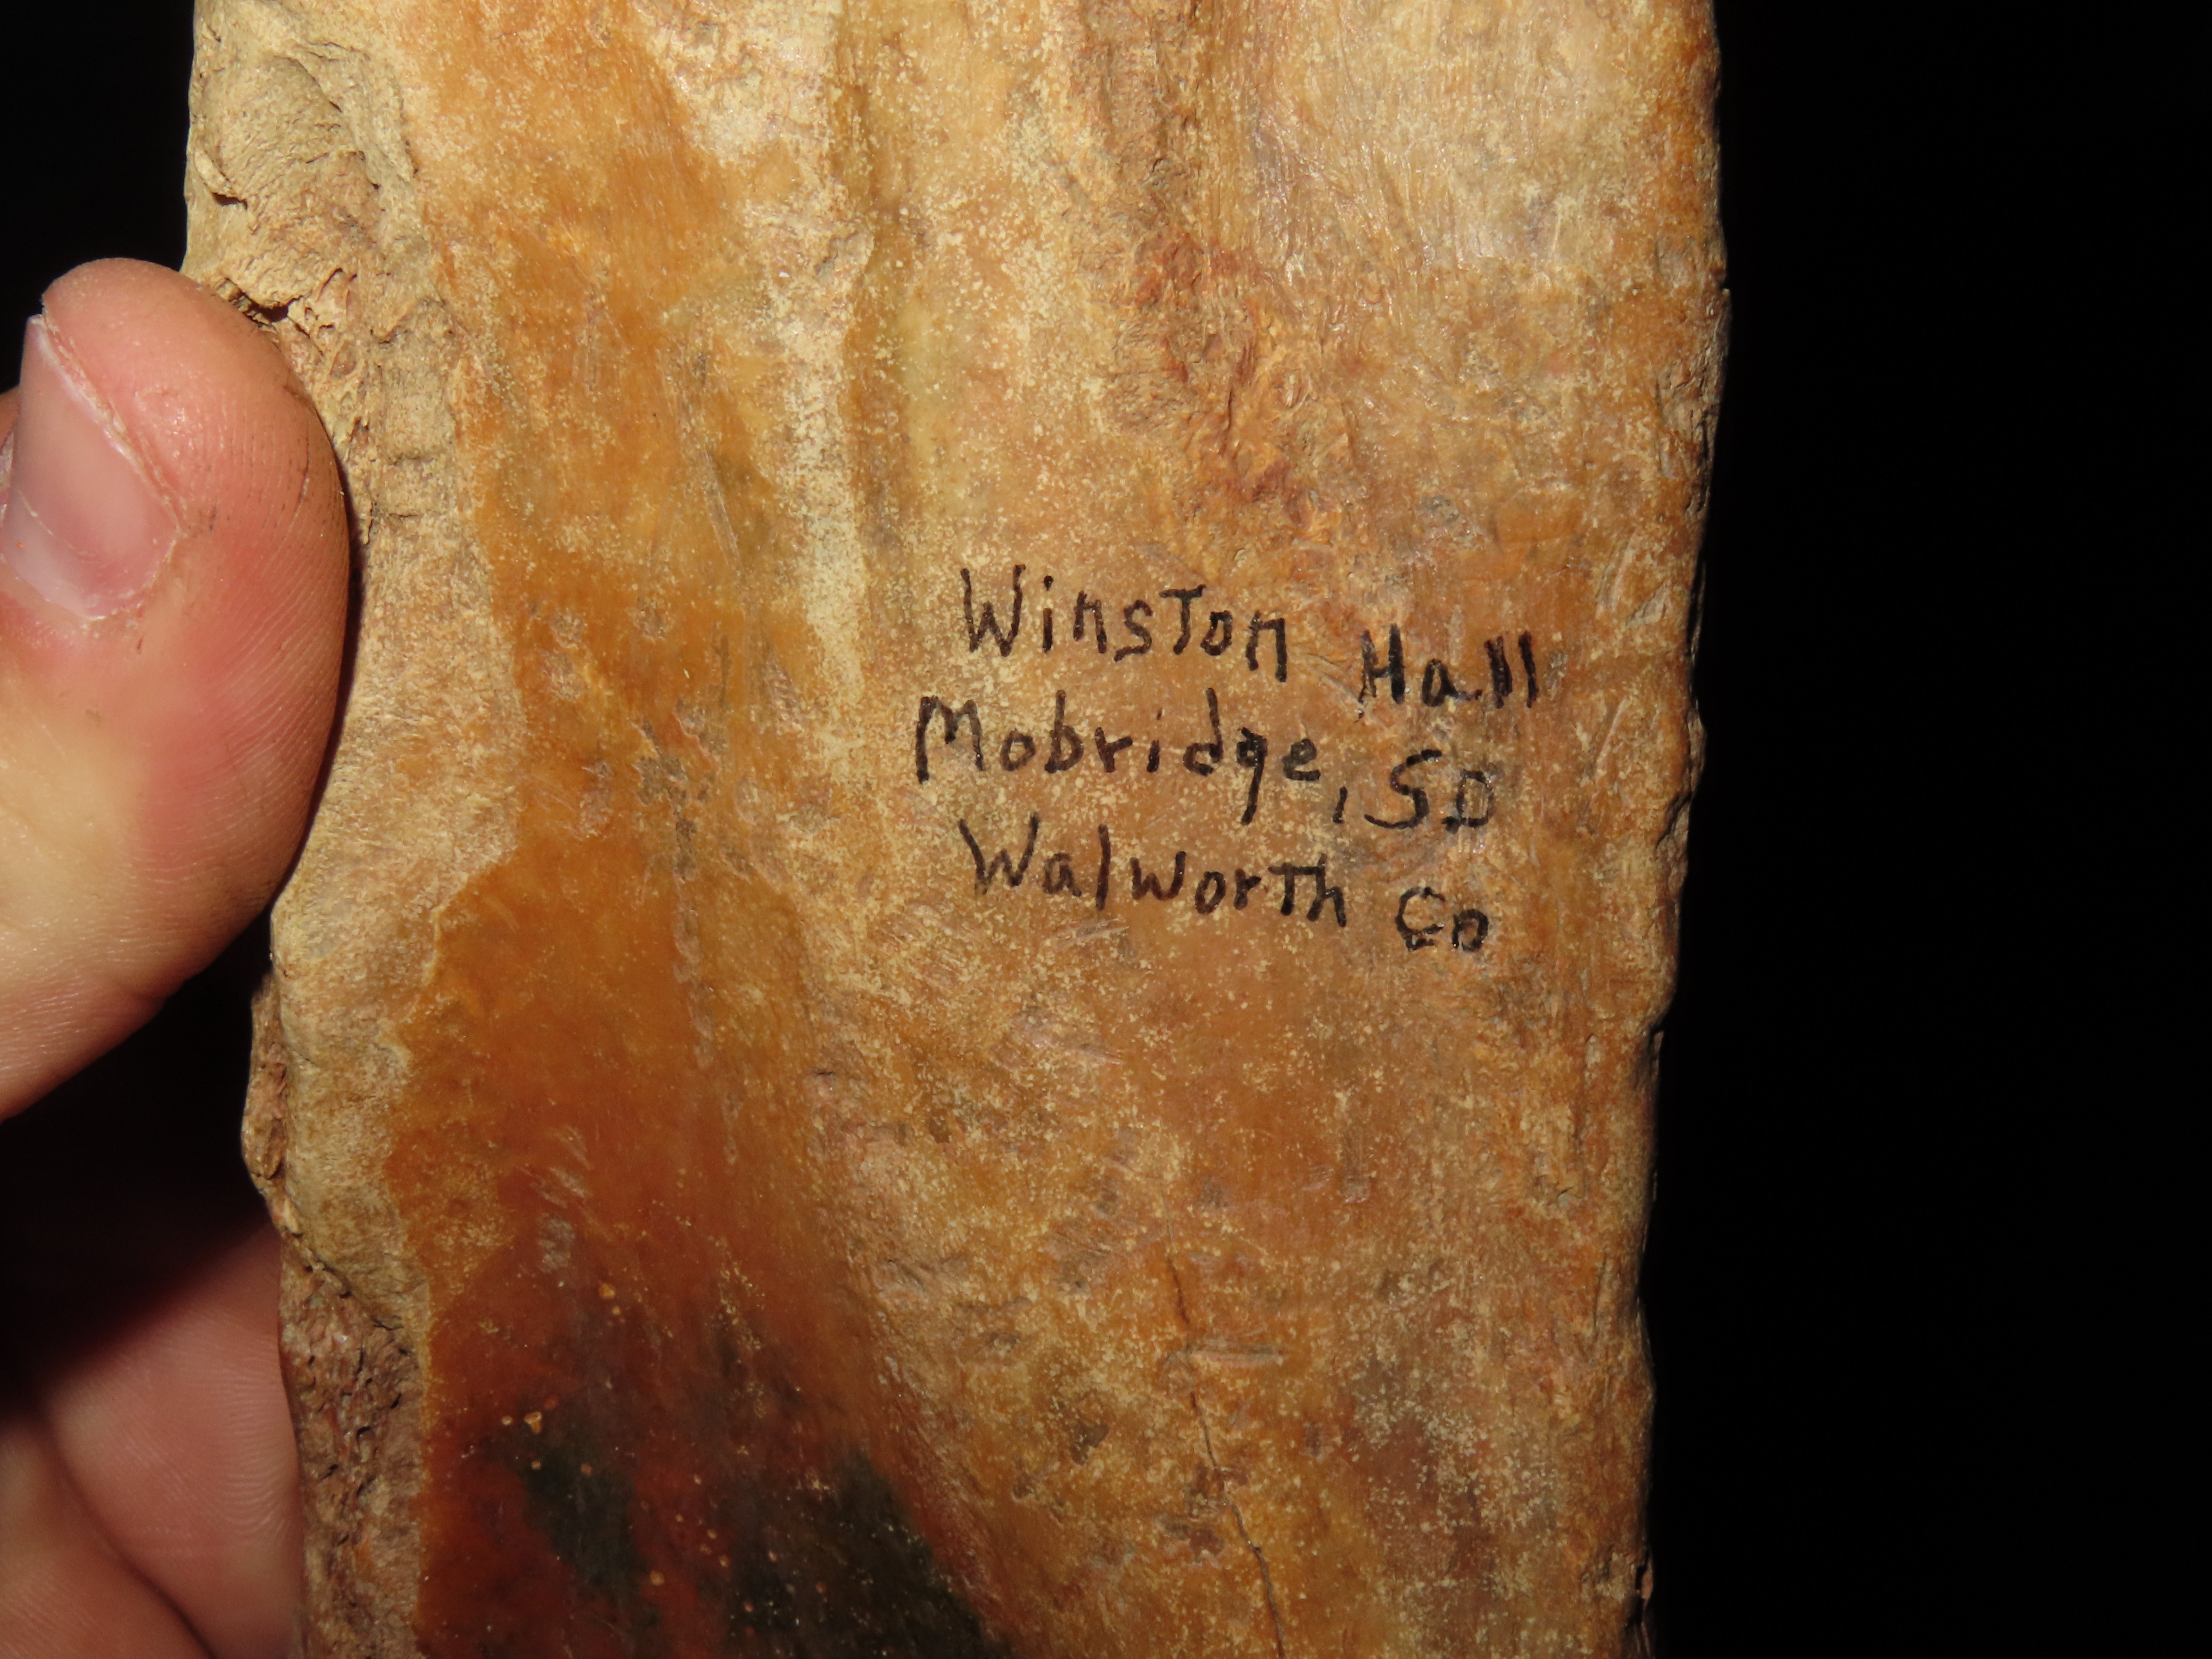 Winston Hall
Mobridge, SD
Walworth Co